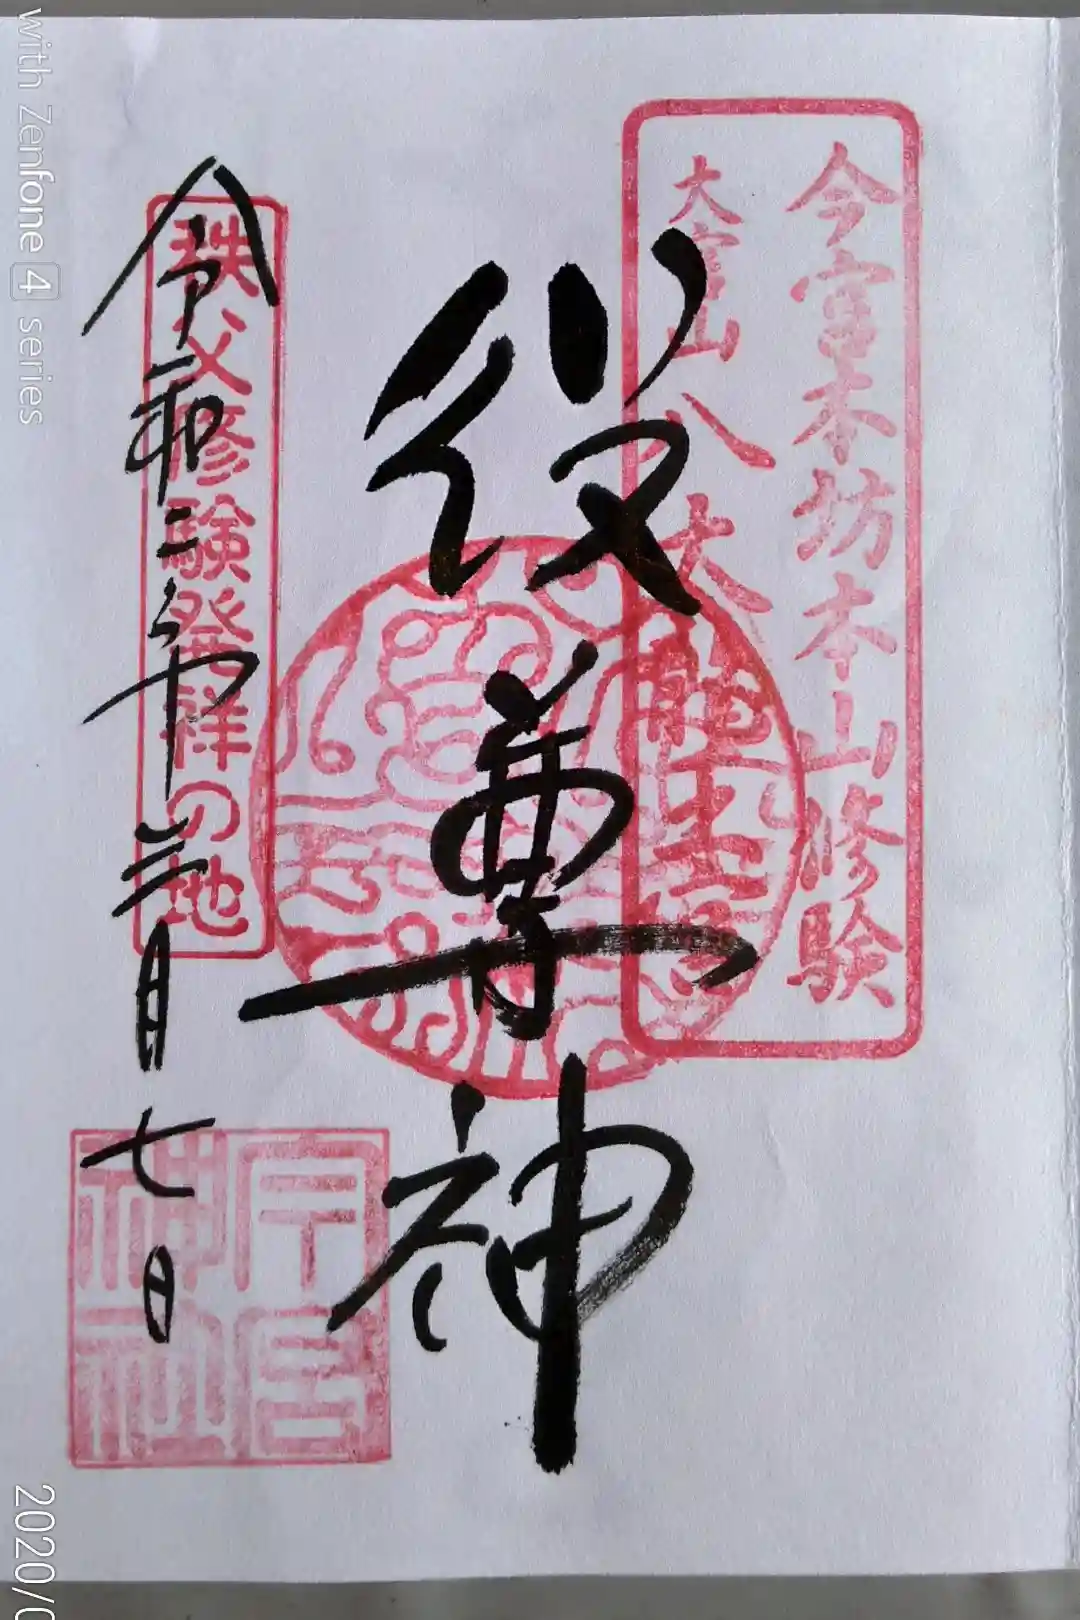 今宮本坊本山修験
大宮山八大龍王宮
役尊神
秩父修験発祥の地
令和二年三月七日
今宮神社
with Zenfone 4 series
2020/0